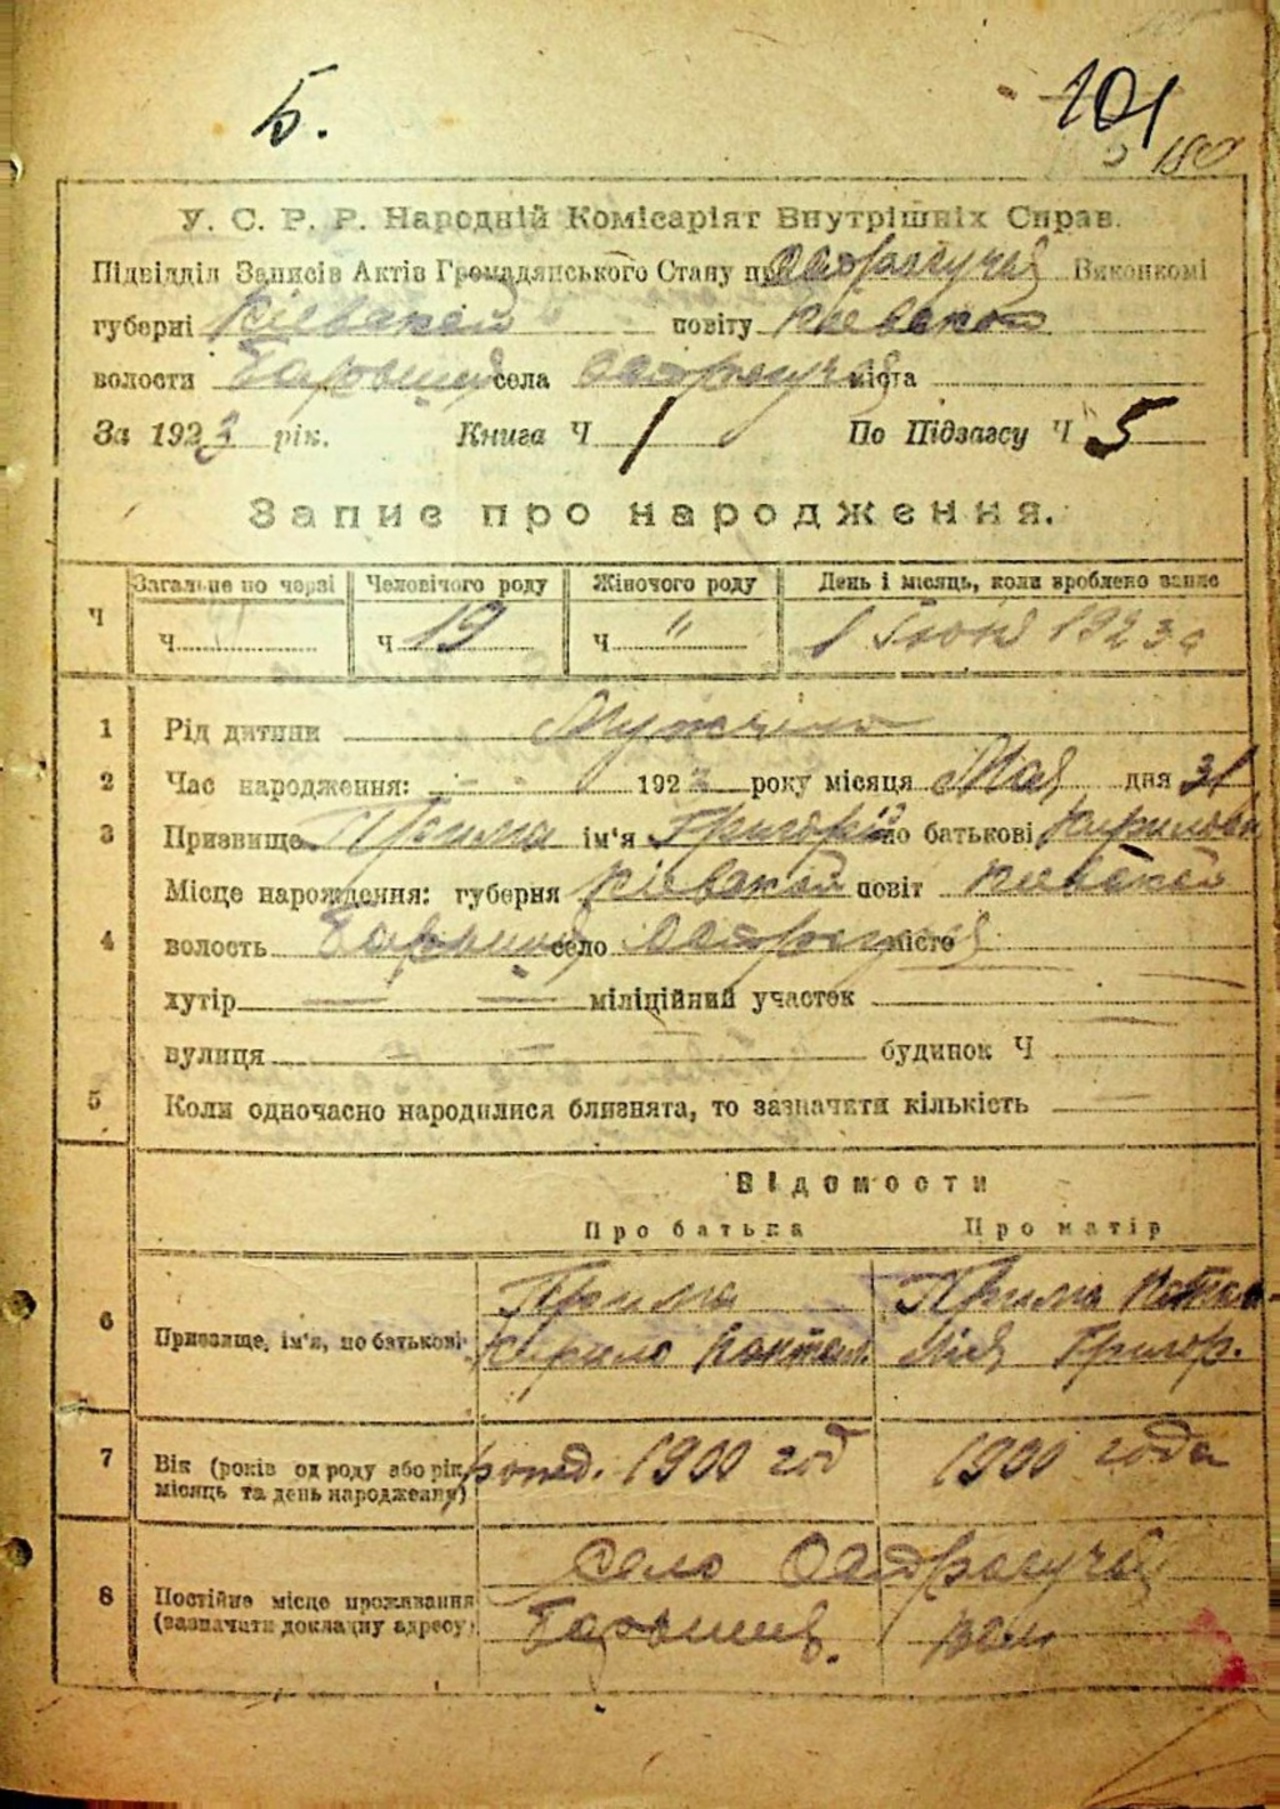 Б.
101
180
У. С. Р. Р. Народній Комісаріят Внутрішніх Справ.
Підвідділ Записів Актів Громадянського Стану при Виконкомі
губерні Кіевской повіту Кіевской
волости села міста
За 1923 рік. Книга Ч 1 По Підзагсу Ч 5
Запис про народження.
Загальне по черзі Человічого роду Жіночого роду День і місяць, коли зроблено запис
Ч Ч Ч 19 Ч " 1 1923 г
1 Рід дитини
2 Час народження: 1923 року місяця Мая дня 31
3 Призвище Прима ім'я Григорій по батькові Кирилови
Місце народження: губерня Кіевской повіт Кіевской
4 волость село місто
хутір — — міліційний участок —
вулиця — будинок Ч —
5 Коли одночасно народилися близнята, то зазначити кількість —
Відомости
Про батька Про матір
6 Призвище, ім'я, по батькові Прима Прима Натал
Кирило Пантел. Григор.
7 Вік (років од роду або рік, рожд. 1900 год 1900 года
місяць та день народження)
8 Постійне місце проживання Село
(зазначити докладну адресу)